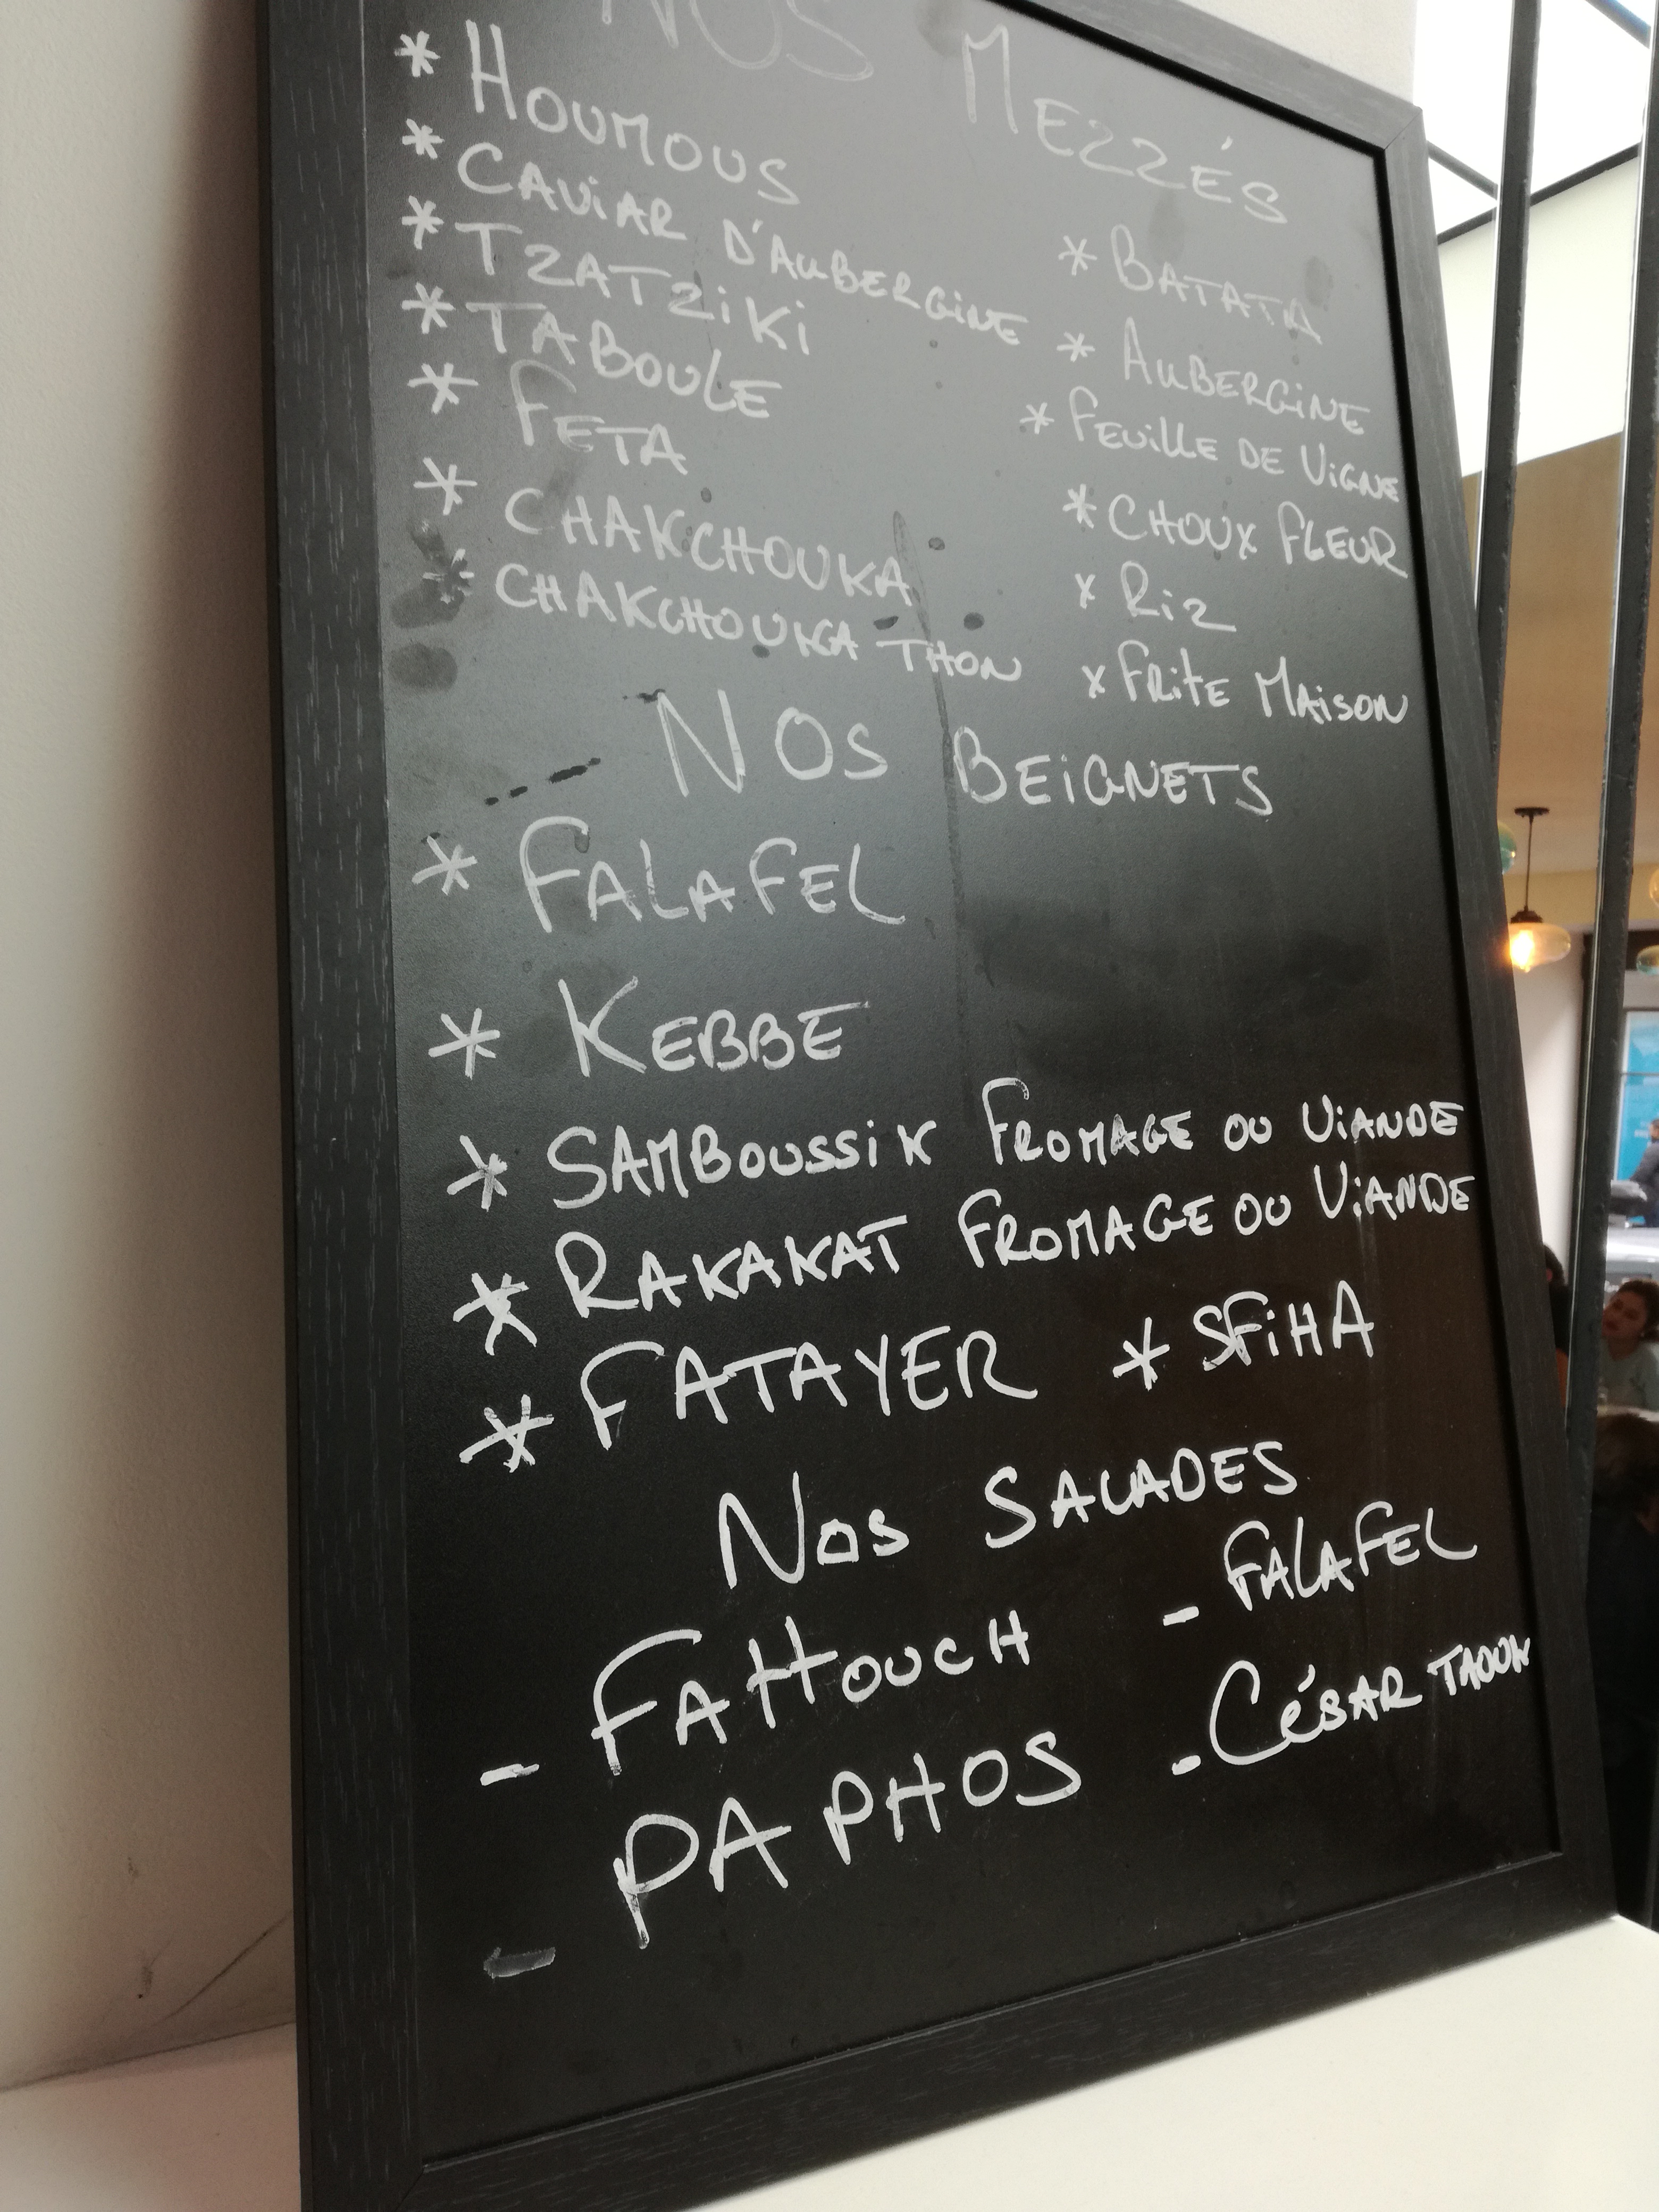 NOS MEZZÉS
* HOUMOUS
* CAVIAR D'AUBERGINE
* TZATZIKI
* TABOULE
* FETA
* CHAKCHOUKA
* CHAKCHOUKA THON
* BATATA
* AUBERGINE
* FEUILLE DE VIGNE
* CHOUX FLEUR
x RIZ
x FRITE MAISON
NOS BEIGNETS
* FALAFEL
* KEBBE
* SAMBOUSSIK FROMAGE OU VIANDE
* RAKAKAT FROMAGE OU VIANDE
* FATAYER * SFIHA
NOS SALADES
- FATTOUCH - FALAFEL
- PAPHOS - CÉSAR TAOUK